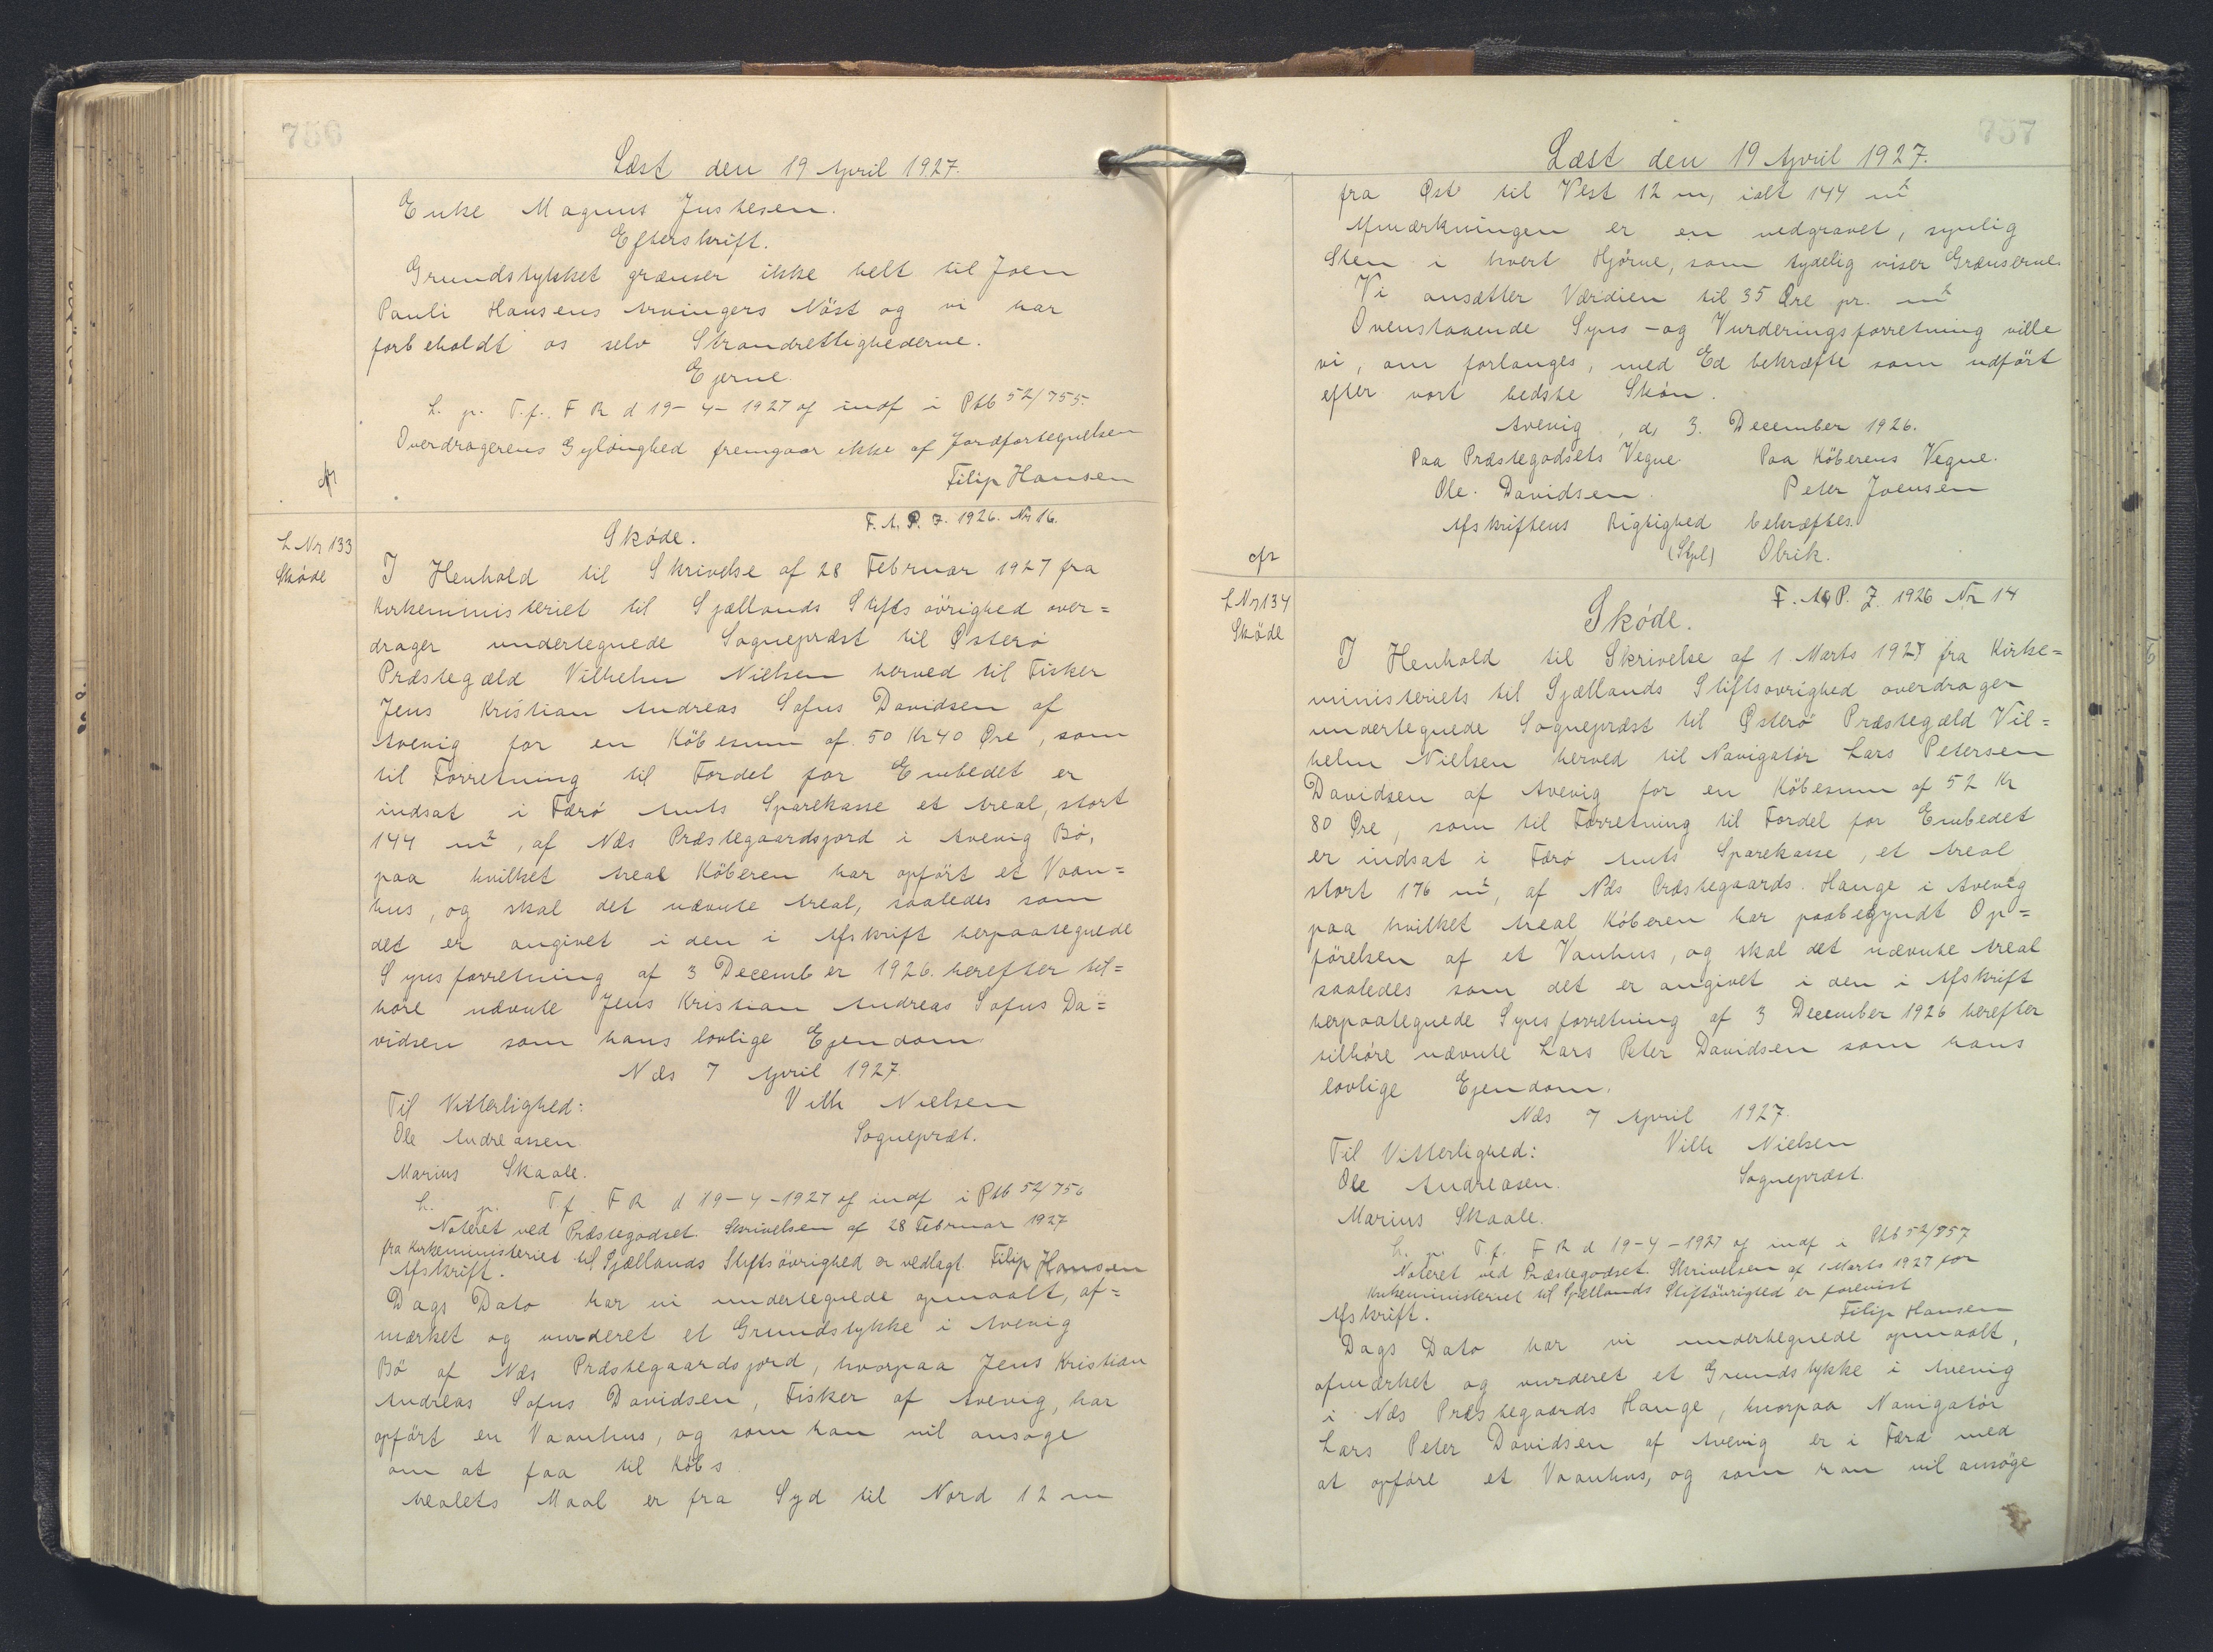 756
Læst den 19 April 1927.
Enke Magnus Justesen.
Efterskrift.
Grundstykket grænser ikke helt til Joen
Pauli Hansens Arvingers Nöst og vi har
forbeholdt os selv Strandrettighederne.
Ejerne.
L. p. T.f. F R d 19-4-1927 og indf i Ptb 52/755.
Overdragerens Gyldighed fremgaar ikke af Jordfortegnelsen
Filip Hansen
L Nr 133
Sköde
Sköde.
F. A. P. J. 1926. Nr 16.
I Henhold til Skrivelse af 28 Februar 1927 fra
Kirkeministeriet til Sjællands Stifts övrighed over=
drager undertegnede Sognepræst til Østerö
Præstegæld Vilhelm Nielsen herved til Fisker
Jens Kristian Andreas Sofus Davidsen af
Avevig for en Köbesum af 50 Kr 40 Øre, som
til Forretning til Fordel for Embedet er
indsat i Færö Amts Sparekasse et Areal, stort
144 m2, af Næs Præstegaardsjord i Avevig Bö,
paa hvilket Areal Köberen har opført et Vaan=
hus, og skal det nævnte Areal, saaledes som
det er angivet i den i Afskrift herpaategnede
Synsforretning af 3 December 1926. herefter til=
höre nævnte Jens Kristian Andreas Sofus Da=
vidsen som hans lovlige Ejendom
Næs 7 April 1927.
Til Vitterlighed: Vilh Nielsen
Ole Andreassen. Sognepræt.
Marius Skaale.
L. p. T.f. F R d 19-4-1927 og indf i Ptb 52/756
Noteret ved Præstegodset. Skrivelsen af 28 Februar 1927
fra Kirkeministeriet til Sjællands Stiftsövrighed er vedlagt Filip Hansen
Afskrift.
Dags Dato har vi undertegnede opmaalt, af=
mærket og vurderet et Grundstykke i Avevig
Bö af Næs Præstegaardsjord, hvorpaa Jens Kristian
Andreas Sofus Davidsen, Fisker af Avevig, har
opført en Vaanhus, og som han vil ansøge
om at faa til Köbs
Arealets Maal er fra Syd til Nord 12 m
757
Læst den 19 April 1927.
fra Øst til Vest 12 m, ialt 144 m2
Afmærkningen er en nedgravet, synlig
Sten i hvert Hjörne, som tydelig viser Grænserne.
Vi ansætter Værdien til 35 Øre pr. m2
Ovenstaaende Syns- og Vurderingsforretning ville
vi, om forlanges, med Ed bekræfte som udfört
efter vort bedste Skön.
Avevig, d, 3. December 1926.
Paa Præstegodsets Vegne Paa Köberens Vegne.
Ole. Davidsen. Peter Joensen
Afskriftens Rigtighed bekræftes.
Olrik.
L Nr 134
Sköde
F. A. P. J. 1926 Nr 14
Sköde.
I Henhold til Skrivelse af 1 Marts 1927 fra Kirke=
ministeriets til Sjællands Stiftsovrighed overdrager
undertegnede Sognepræst til Østerö Præstegæld Vil=
helm Nielsen herved til Navigatör Lars Petersen
Davidsen af Avevig for en Köbesum af 52 Kr
80 Øre, som til Forretning til Fordel for Embedet
er indsat i Færö Amts Sparekasse, et Areal
stort 176 m2, af Næs Præstegaards. Hauge i Avevig
paa hvilket Areal Köberen har paabegyndt Op=
förelsen af et Vanhus, og skal det nævnte Areal
saaledes som det er angivet i den i Afskrift
herpaategnede Synsforretning af 3 December 1926 herefter
tilhöre nævnte Lars Peter Davidsen som hans
lovlige Ejendom.
Næs 7 April 1927.
Til Vitterlighed: Vilh Nielsen
Ole Andreasen. Sognepræst.
Marius Skaale.
L. p. T.f. F R d 19-4-1927 og indf i Ptb 52/757
Noteret ved Præstegodset. Skrivelsen af 1 Marts 1927 for
Kirkeministeriet til Sjællands Stiftövrighed er forevist
Filip Hansen
Afskrift.
Dags Dato har vi undertegnede opmaalt,
afmærket og vurderet et Grundstykke i Avevig
i Næs Præstegaards Hauge, hvorpaa Navigatör
Lars Peter Davidsen af Avevig er i Færd med
at opföre et Vaanhus, og som han vil ansöge